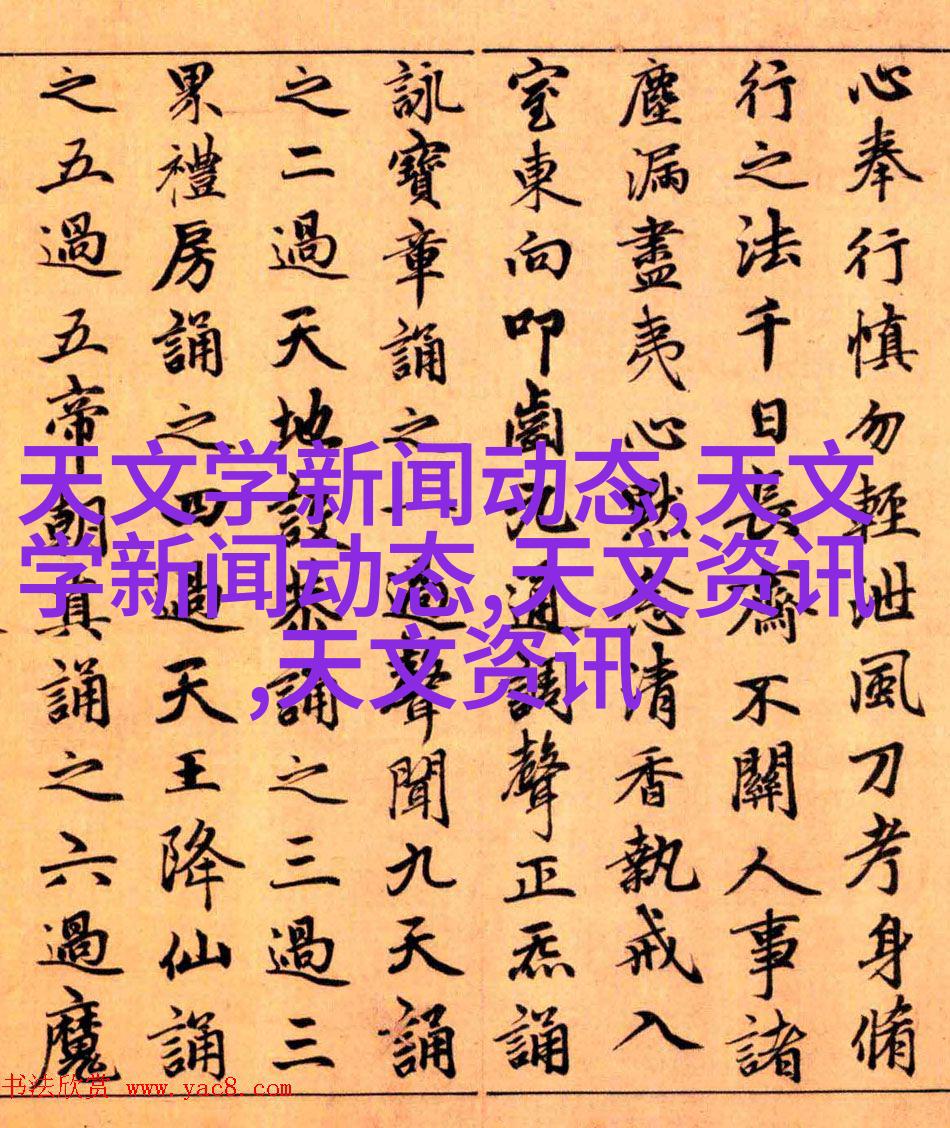 心奉行慎勿輕泄風刀考身脩
行之法千日長齋不關人事諸
塵漏盡夷心默念清香執戒入
室東向叩齒九通調聲正炁誦
詠寶章誦之一過聲聞九天誦
之二過天地設恭誦之三過三
累禮房誦之四過天王降仙誦
之五過五帝朝真誦之六過魔
天文学新闻动态,天文
学新闻动态,天文资讯
,天文资讯
书法欣赏 www.yac8.com